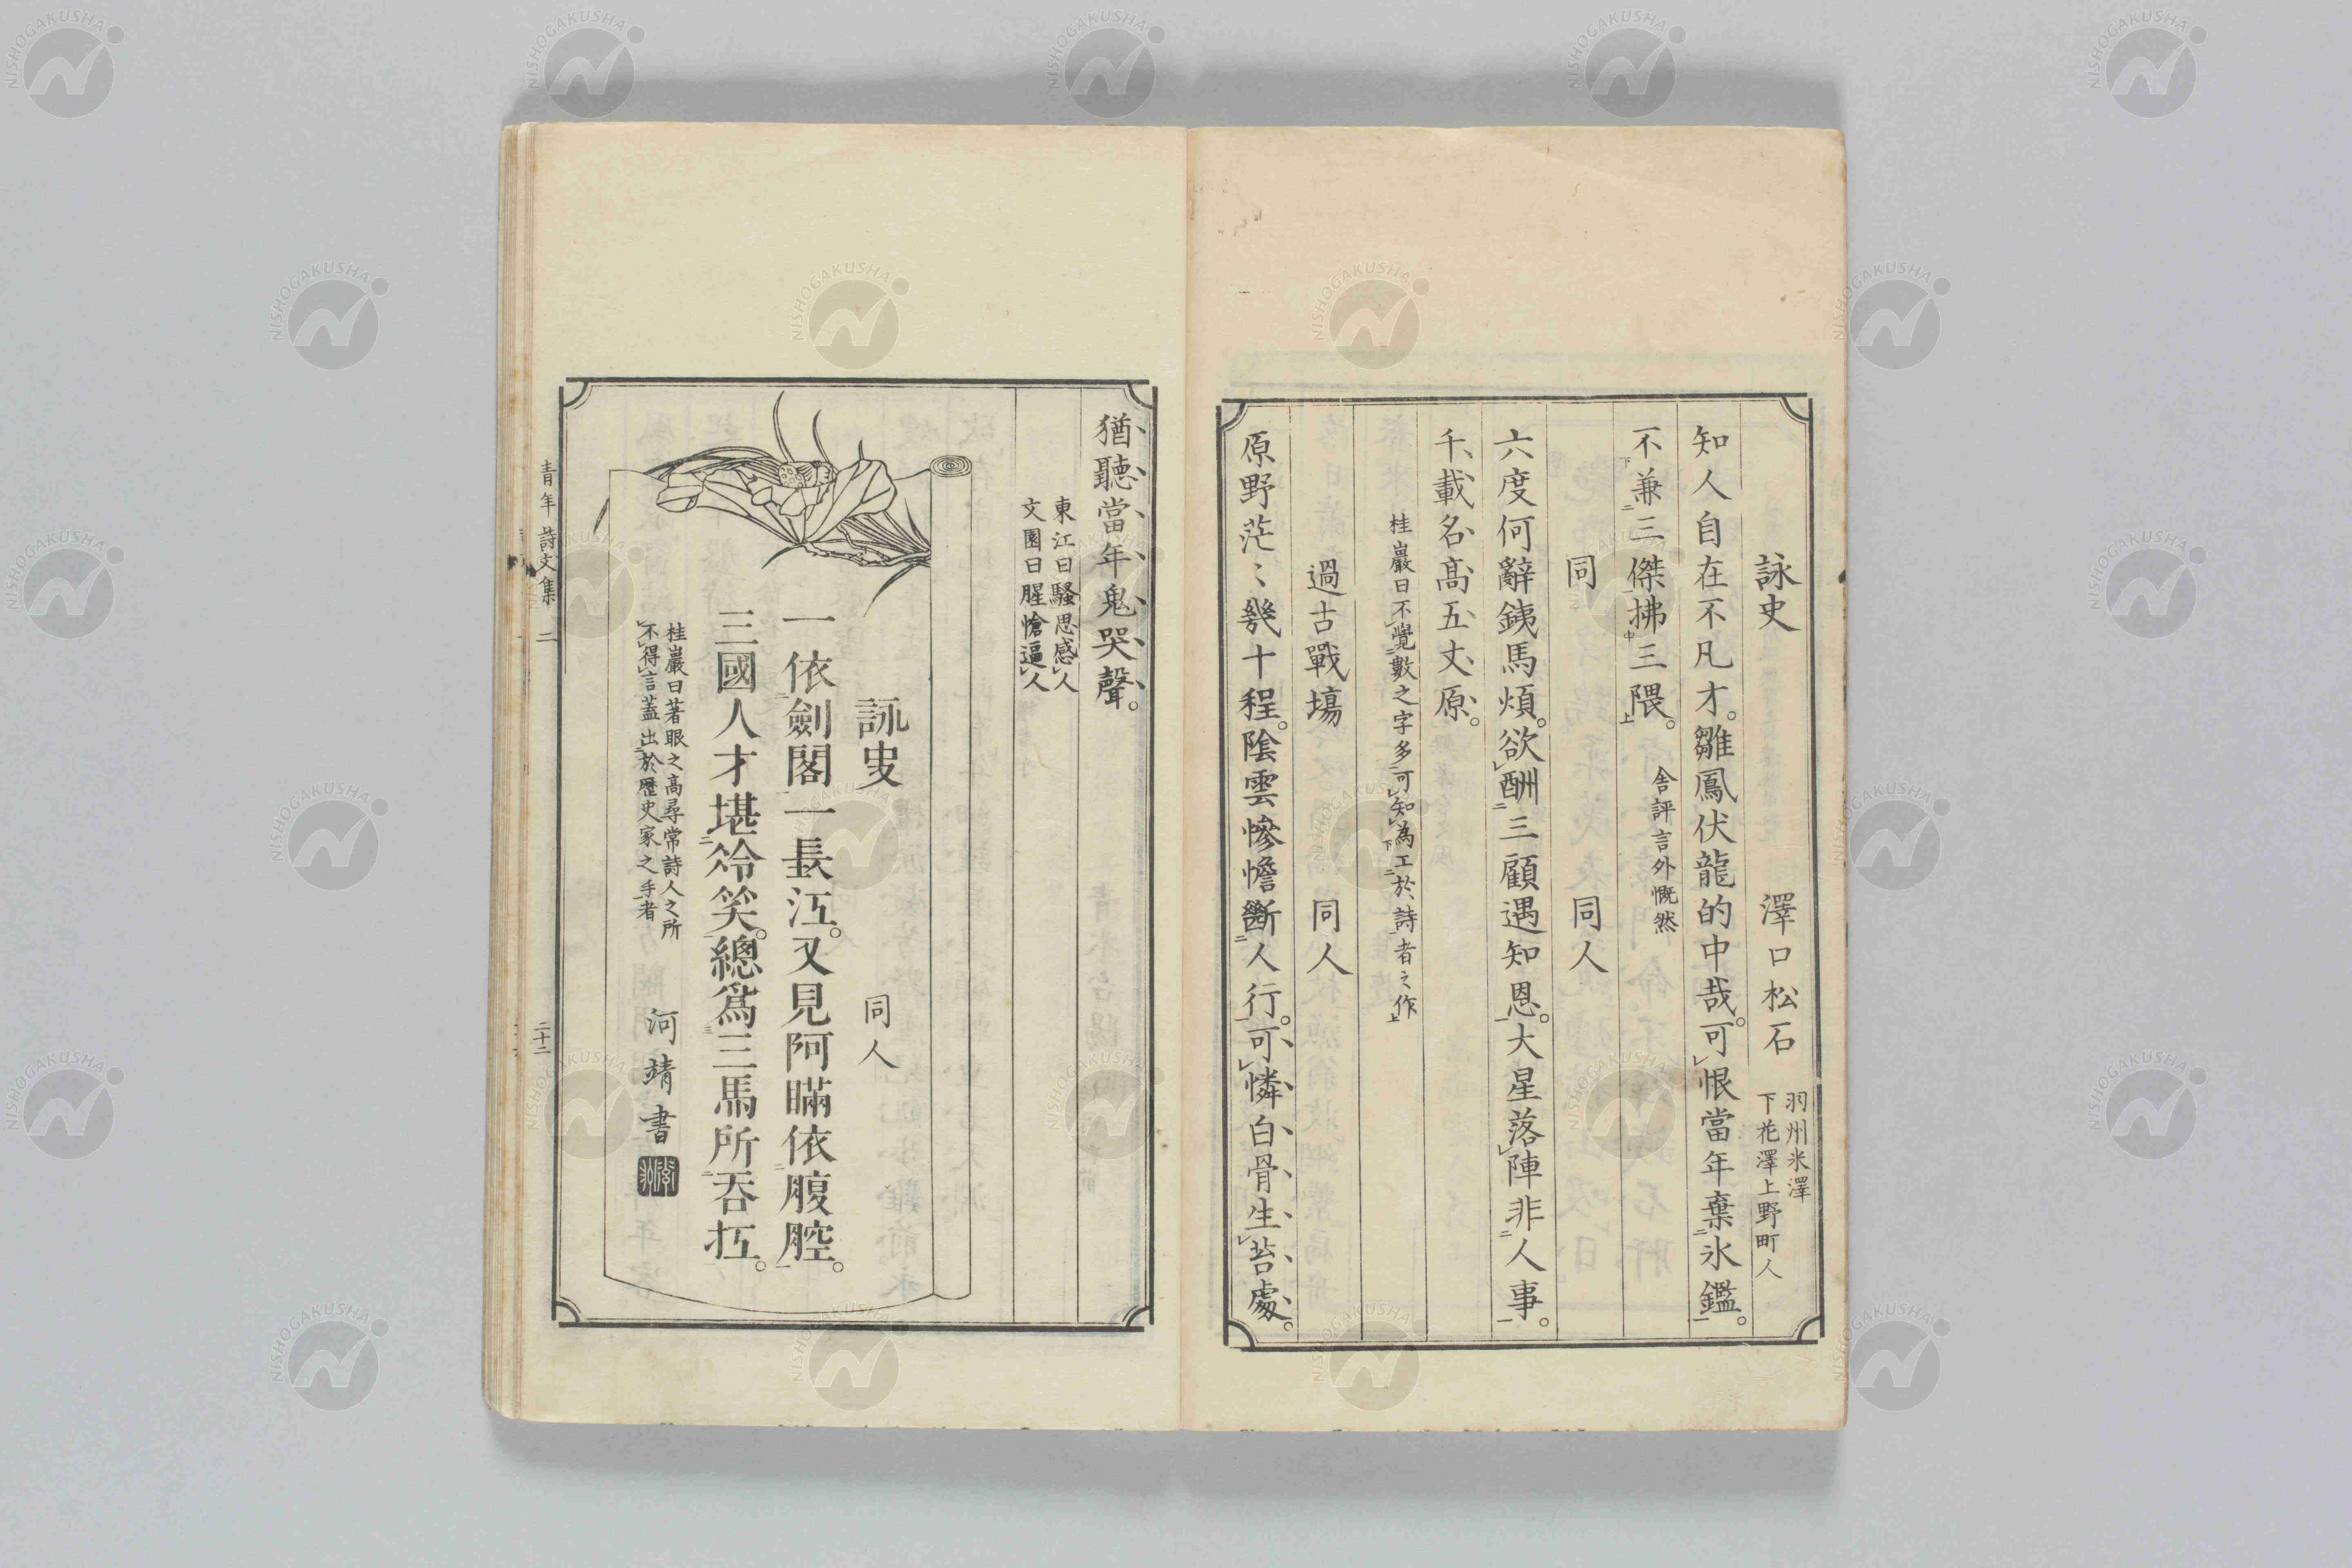 詠史 澤口松石 羽州米澤
下花澤上野町人
知人自在不凡才。雛鳳伏龍的中哉。可恨當年棄氷鑑。
不兼三傑拂三隈。 舍評言外慨然
同 同人
六度何辭銕馬煩。欲酬三顧遇知恩。大星落陣非人事。
千載名高五丈原。
桂巖曰不覺數之字多可知為工於詩者之作
過古戰塲 同人
原野茫〻幾十程。陰雲慘憺斷人行。可憐白骨生苔處。
猶聽當年鬼哭聲。
東江曰騷思感人
文園曰腥愴逼人
詠史 同人
一依劍閣一長江。又見阿瞞依腹腔。
三國人才堪冷笑。總爲三馬所吞扛。
桂巖曰著眼之高尋常詩人之所
不得言蓋出於歷史家之手者
河靖書
青年詩文集 二 二十二
NISHOGAKUSHA